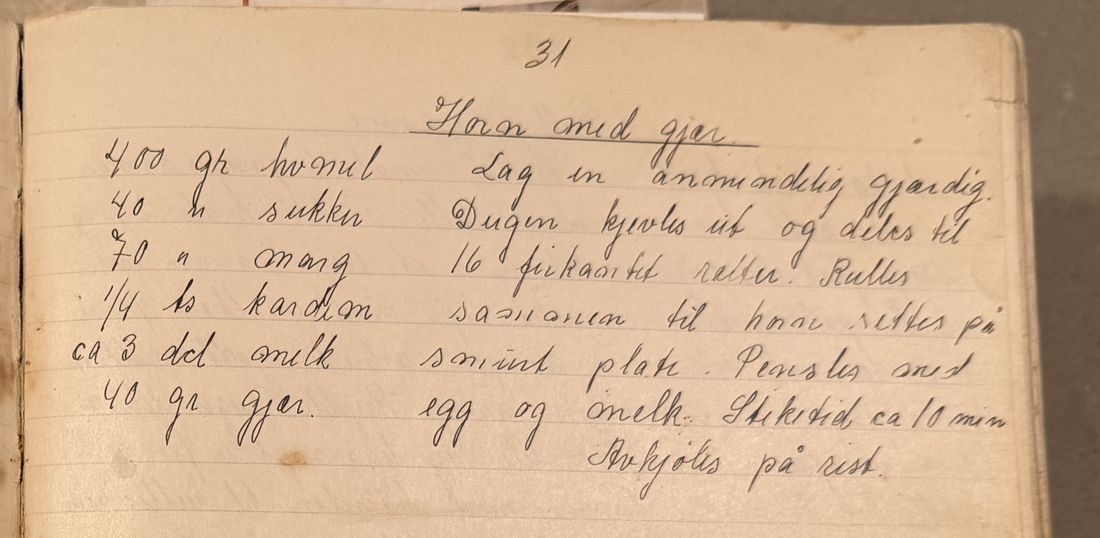 31
Horn med gjær.
400 gr hvmel
40 " sukker
70 " marg
1/4 ts kardem
ca 3 del melk
40 gr gjær.
Lag en anmindelig gjærdig.
Deigen kjevles ut og deles til
16 firkantet Rulles
sammen til horn settes på
smurt plate. Pensles med
egg og melk. Steketid ca 10 min
Avkjøles på rist.